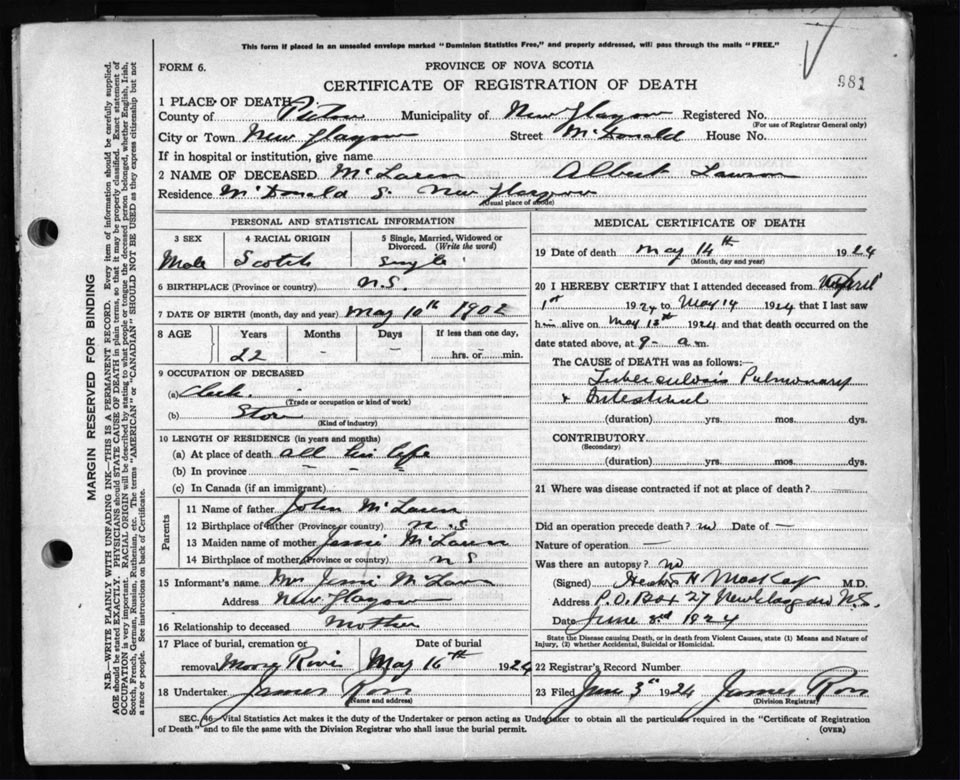 This form if placed in an unsealed envelope marked "Dominion Statistics Free," and properly addressed, will pass through the mails "FREE."
FORM 6.
PROVINCE OF NOVA SCOTIA
981
CERTIFICATE OF REGISTRATION OF DEATH
1 PLACE OF DEATH
County of Pictou Municipality of New Glasgow Registered No.
(For use of Registrar General only)
City or Town New Glasgow Street McDonald House No.
If in hospital or institution, give name
2 NAME OF DECEASED McLaren Albert Lawson
Residence McDonald S. New Glasgow
(Usual place of abode)
PERSONAL AND STATISTICAL INFORMATION
3 SEX 4 RACIAL ORIGIN 5 Single, Married, Widowed or Divorced. (Write the word)
Male Scotch Single
6 BIRTHPLACE (Province or country) N.S.
7 DATE OF BIRTH (month, day and year) May 10th 1902
8 AGE Years Months Days If less than one day,
22 - - hrs. or min.
9 OCCUPATION OF DECEASED
(a) Clerk.
(Trade or occupation or kind of work)
(b) Store
(Kind of industry)
10 LENGTH OF RESIDENCE (in years and months)
(a) At place of death all his life
(b) In province - - -
(c) In Canada (if an immigrant)
Parents
11 Name of father John McLaren
12 Birthplace of father (Province or country) N.S
13 Maiden name of mother Jessie McLaren
14 Birthplace of mother (Province or country) N S
15 Informant's name Mrs Jessie McLaren
Address New Glasgow
16 Relationship to deceased Mother
17 Place of burial, cremation or Date of burial
removal May 16th 1924
18 Undertaker James Ross
(Name and address)
MEDICAL CERTIFICATE OF DEATH
19 Date of death May 14th 1924
(Month, day and year)
20 I HEREBY CERTIFY that I attended deceased from April
1st 1924 to May 14 1924 that I last saw
him alive on May 13th 1924 and that death occurred on the
date stated above, at 9- a m.
The CAUSE OF DEATH was as follows:—
Tuberculosis Pulmonary
& Intestinal
(duration) yrs. mos. dys.
CONTRIBUTORY
(Secondary)
(duration) yrs. mos. dys.
21 Where was disease contracted if not at place of death? —
Did an operation precede death? no Date of —
Nature of operation —
Was there an autopsy? no
(Signed) H MacKay M.D.
Address P.O. Box 27 New Glasgow N.S.
Date June 3rd 1924
State the Disease causing Death, or in death from Violent Causes, state (1) Means and Nature of Injury, (2) whether Accidental, Suicidal or Homicidal.
22 Registrar's Record Number
23 Filed June 3rd 1924 James Ross
(Division Registrar)
SEC. 46 Vital Statistics Act makes it the duty of the Undertaker or person acting as Undertaker to obtain all the particulars required in the "Certificate of Registration
of Death" and to file the same with the Division Registrar who shall issue the burial permit.
(OVER)
MARGIN RESERVED FOR BINDING
N.B.—WRITE PLAINLY WITH UNFADING INK—THIS IS A PERMANENT RECORD. Every item of information should be carefully supplied.
AGE should be stated EXACTLY. PHYSICIANS should STATE CAUSE OF DEATH in plain terms, so that it may be properly classified. Exact statement of
OCCUPATION is very important. RACIAL ORIGIN will be described by stating to what people or tongue the deceased person belonged, whether English, Irish,
Scotch, French, German, Russian, Ruthenian, etc. The terms "AMERICAN" or "CANADIAN" SHOULD NOT BE USED as they express citizenship but not
a race or people. See instructions on back of Certificate.